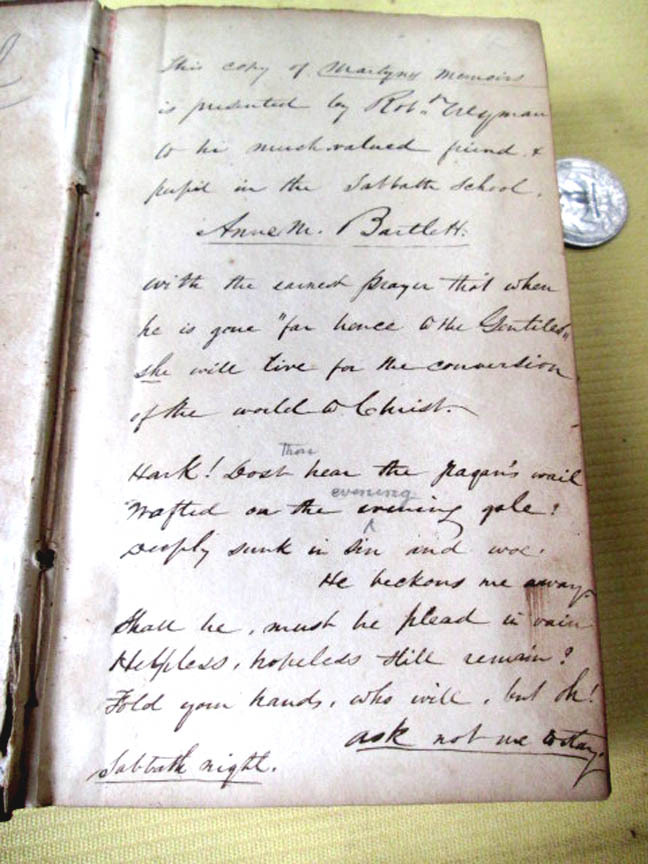 This copy of Martyn's Memoirs
is presented by Robt. Wyman
to his much valued friend &
pupil in the Sabbath School.
Anne M. Bartlett.
with the earnest prayer that when
he is gone "far hence to the Gentiles"
she will live for the conversion
of the world to Christ.
thou
Hark! Dost hear the pagan's wail
evening
Wafted on the evening gale?
Deeply sunk in sin and woe.
He beckons me away
Shall he, must he plead in vain
Helpless, hopeless still remain?
Fold your hands, who will, but oh!
ask not me to stay.
Sabbath night.